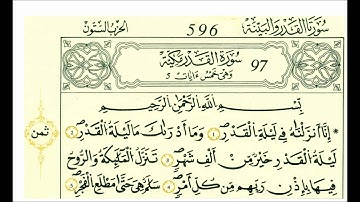 سورتا القدر والبينة 596 الحزب الستون
سورة القدر مكية 97
وهي خمس ءايات 5
بسم الله الرحمن الرحيم
إنا أنزلناه في ليلة القدر وما أدراك ما ليلة القدر
ليلة القدر خير من ألف شهر تنزل الملائكة والروح
فيها بإذن ربهم من كل أمر سلام هي حتى مطلع الفجر
ثمن